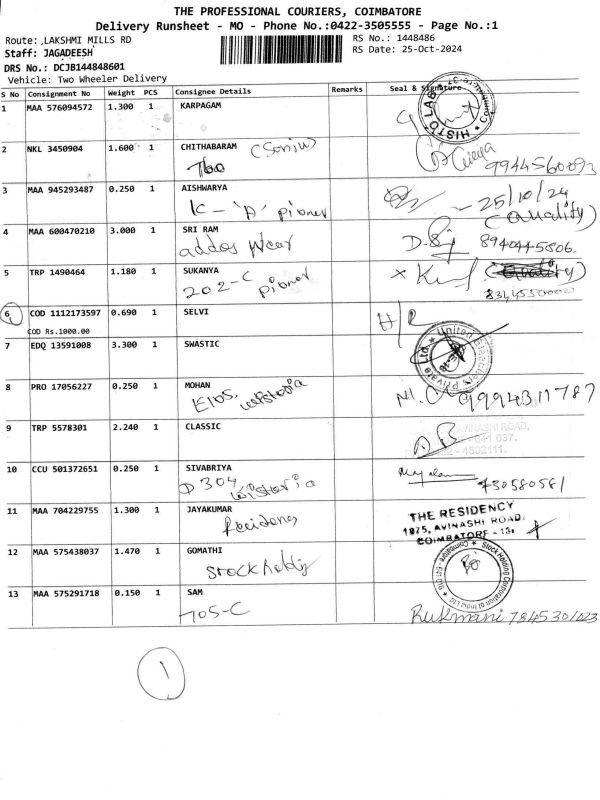 THE PROFESSIONAL COURIERS, COIMBATORE
Delivery Runsheet - MO - Phone No.:0422-3505555 - Page No.:1
Route: ,LAKSHMI MILLS RD
RS No.: 1448486
Staff: JAGADEESH
RS Date: 25-Oct-2024
DRS No.: DCJB144848601
Vehicle: Two Wheeler Delivery
S No Consignment No Weight PCS Consignee Details Remarks Seal & Signature
1 MAA 576094572 1.300 1 KARPAGAM
HISTO LAB
2 NKL 3450904 1.600 1 CHITHABARAM
3 MAA 945293487 0.250 1 AISHWARYA
K - 'A' pioner
25/10/24
(Quality)
4 MAA 600470210 3.000 1 SRI RAM
addos wear
8940445806.
5 TRP 1490464 1.180 1 SUKANYA
202-C pioner
6 COD 1112173597 0.690 1 SELVI
COD Rs.1000.00
H/R
7 EDQ 13591008 3.300 1 SWASTIC
8 PRO 17056227 0.250 1 MOHAN
E105, wisteria
9994311787
9 TRP 5578301 2.240 1 CLASSIC
10 CCU 501372651 0.250 1 SIVABRIYA
D 304 wisteria
11 MAA 704229755 1.300 1 JAYAKUMAR
THE RESIDENCY
1875, AVINASHI ROAD,
COIMBATORE - 18.
12 MAA 575438037 1.470 1 GOMATHI
Stock holdig
Stock Holding Corporation of India Ltd
13 MAA 575291718 0.150 1 SAM
705-C
Rukmani 7845301023
1